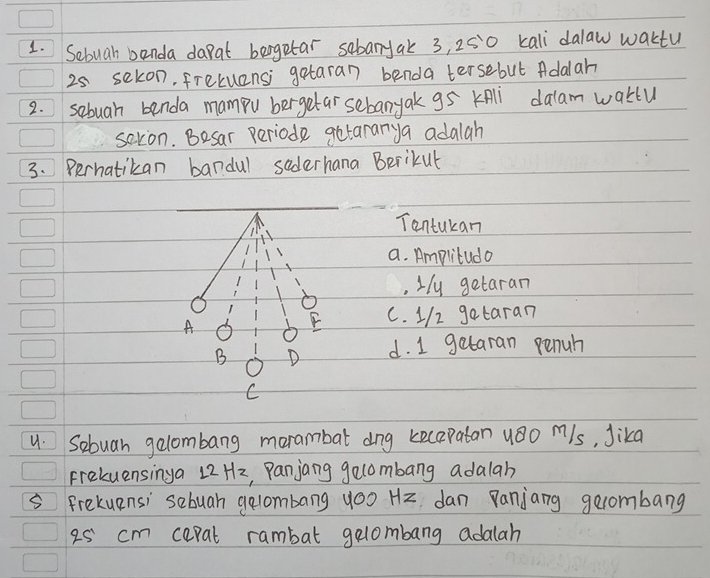 1. Sebuah benda dapat bergetar sebanyak 3,250 kali dalaw waktu
25 sekon. frekuensi getaran benda tersebut Adalah
2. sebuah benda mampu bergetar sebanyak 95 kali dalam waktu
sekon. Besar Periode getaranya adalah
3. Perhatikan bandul sederhana Berikut
Tentukan
a. Amplitudo
. 1/4 getaran
c. 1/2 getaran
d. 1 getaran penuh
A
B
C
D
E
4. Sebuah gelombang merambat dng kecepatan 480 M/s, Jika
Frekuensinya 12 Hz, Panjang gelombang adalah
5 frekuensi sebuah gelombang 400 Hz dan Panjang gelombang
25 cm cepat rambat gelombang adalah